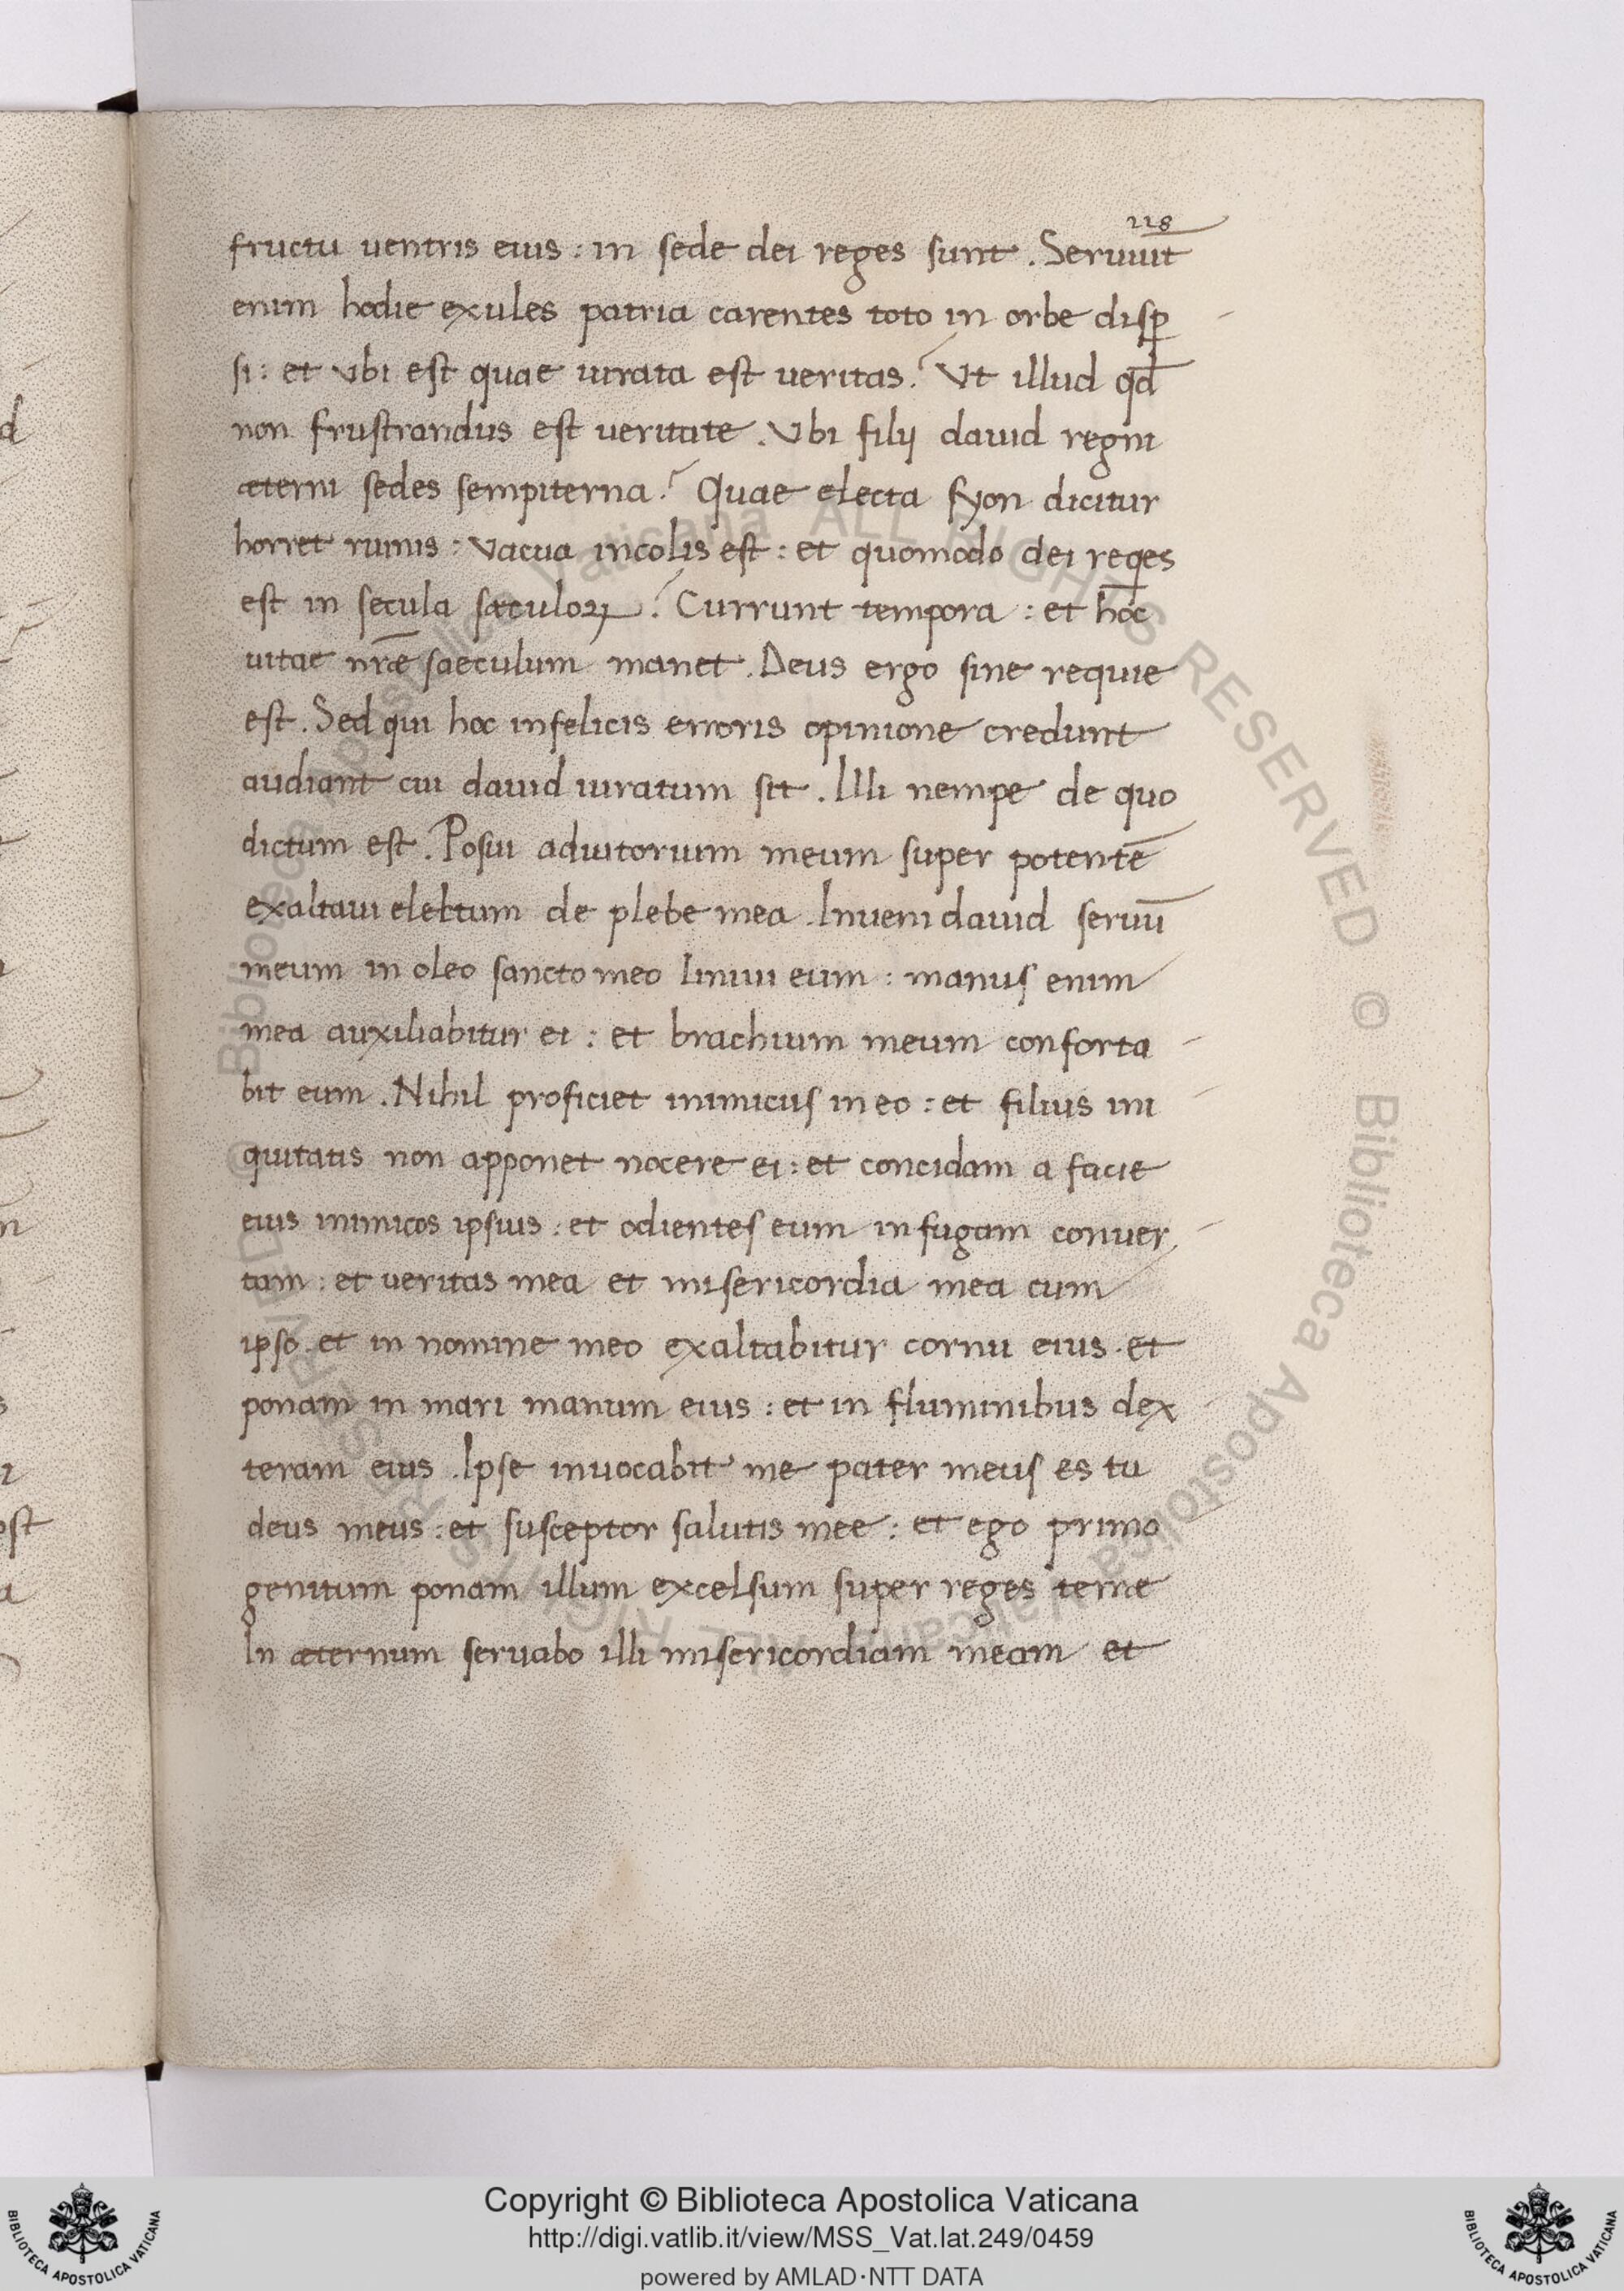 228
fructu uentris eius : in sede dei reges sunt . Seruiūt
enim hodie exules patria carentes toto in orbe disꝑ
si : et vbi est quae iurata est ueritas? Vt illud qd̄
non frustrandus est ueritate . Vbi filij dauid regni
æterni sedes sempiterna? Quae electa syon dicitur
horret ruinis : vacua incolis est : et quomodo dei reqes
est in secula sæculoꝝ? Currunt tempora : et hoc
uitae nr̄æ saeculum manet . Deus ergo sine requie
est . Sed qui hoc infelicis erroris opinione credunt
audiant cui dauid iuratum sit . Illi nempe de quo
dictum est . Posui adiutorium meum super potentē
exaltaui elektum de plebe mea . Inueni dauid seruū
meum in oleo sancto meo liniui eum : manus enim
mea auxiliabitur ei : et brachium meum conforta
bit eum . Nihil proficiet inimicus in eo : et filius ini
quitatis non apponet nocere ei : et concidam a facie
eius inimicos ipsius : et odientes eum in fugam conuer
tam : et ueritas mea et misericordia mea cum
ipso . et in nomine meo exaltabitur cornu eius . et
ponam in mari manum eius : et in fluminibus dex
teram eius . Ipse inuocabit me pater meus es tu
deus meus : et susceptor salutis mee : et ego primo
genitum ponam illum excelsum super reges terræ
In æternum seruabo illi misericordiam meam et
© Biblioteca Apostolica Vaticana ALL RIGHTS RESERVED © Biblioteca Apostolica Vaticana ALL RIGHTS RESERVED
Copyright © Biblioteca Apostolica Vaticana
http://digi.vatlib.it/view/MSS_Vat.lat.249/0459
powered by AMLAD·NTT DATA
BIBLIOTECA APOSTOLICA VATICANA
BIBLIOTECA APOSTOLICA VATICANA